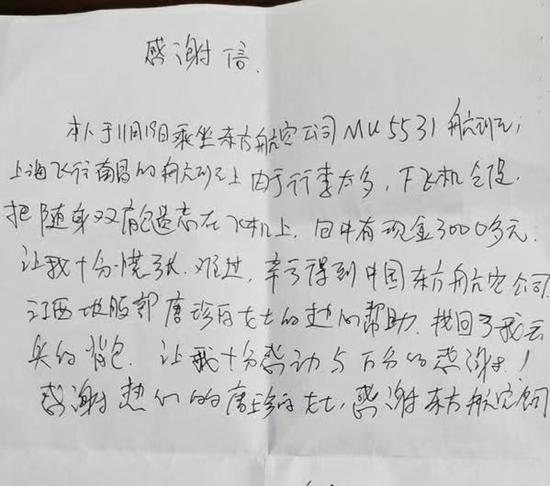 感谢信.
本人于11月19日乘坐东方航空公司MU5531航班,
上海飞往南昌的航班上由于行李太多,下飞机仓促.
把随身双肩包遗忘在飞机上,包中有现金3000多元.
让我十分慌张.难过,幸亏得到中国东方航空公司
江西地服部唐珍女士的热心帮助.找回了我丢
失的背包.让我十分感动与万分的感谢!
感谢热心的唐珍女士,感谢东方航空公司